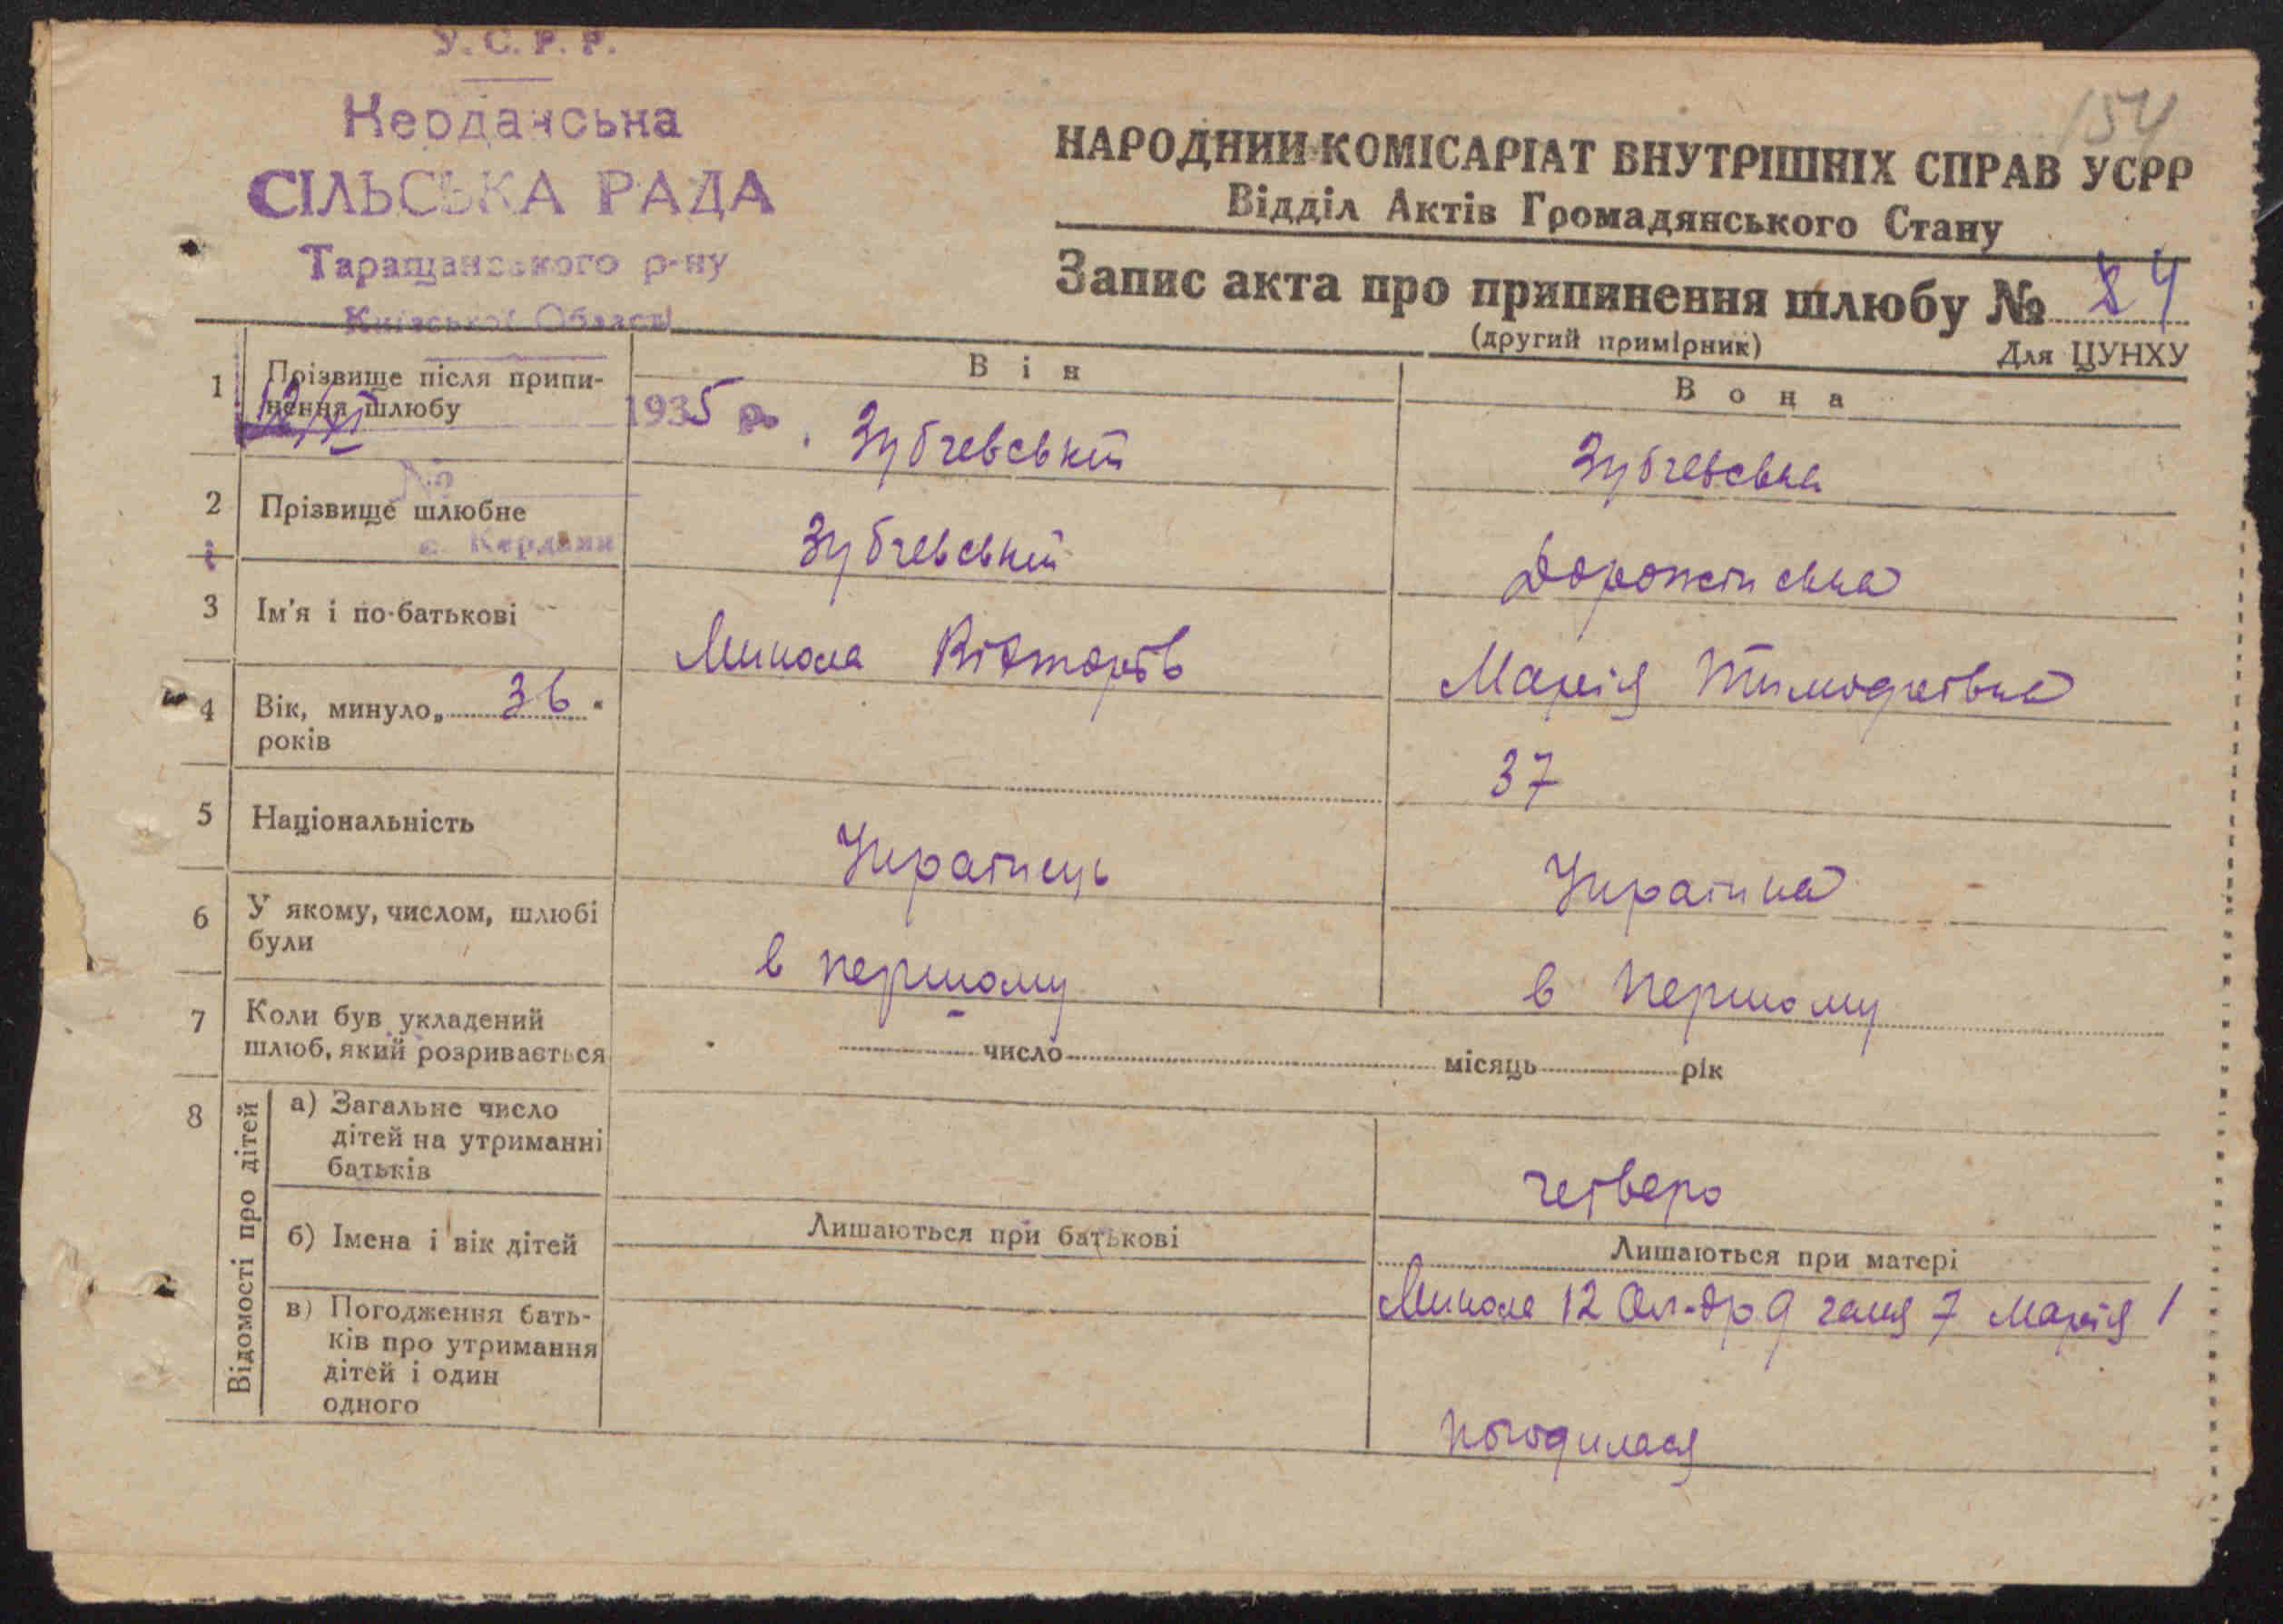 У. С. Р. Р.
Керданська
СІЛЬСЬКА РАДА
Таращанського р-ну
Київської Області
154
НАРОДНИЙ КОМІСАРІАТ ВНУТРІШНІХ СПРАВ УСРР
Відділ Актів Громадянського Стану
Запис акта про припинення шлюбу №
(другий примірник)
Для ЦУНХУ
Він
Вона
1 Прізвище після припи-
нення шлюбу
12/XI 1935 р.
Зубчевський
Зубчевська
№
2 Прізвище шлюбне
с. Кердани
Зубчевський
Дорожінська
3 Ім'я і по-батькові
Микола Вікторів
Марія Тимофіївна
4 Вік, минуло „ 36 "
років
37
5 Національність
Українець
Українка
6 У якому, числом, шлюбі
були
в першому
в першому
7 Коли був укладений
шлюб, який розривається
число місяць рік
8 Відомості про дітей
а) Загальне число
дітей на утриманні
батьків
четверо
б) Імена і вік дітей
Лишаються при батькові
Лишаються при матері
Микола 12 Ол-др 9 галя 7 Марія 1
в) Погодження бать-
ків про утримання
дітей і один
одного
погодилася